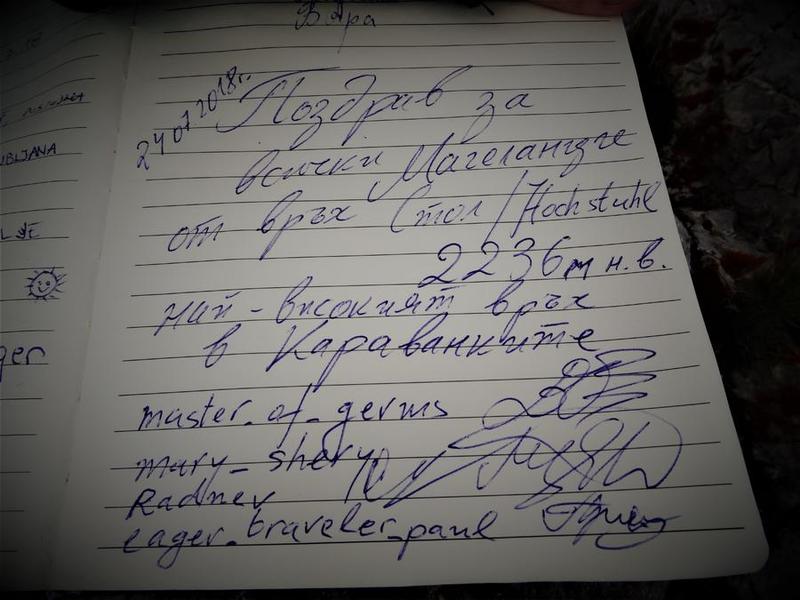 Вяра
24 07 2018г.
Поздрав за
всички Магеланците
от връх Стол / Hochstuhl
2236м н.в.
най-високият връх
в Караванките
master_of_germs
mary_shery
Radnev
eager_traveler_paul
UBLJANA
ger